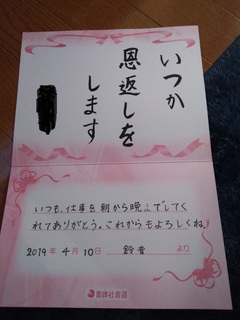 いつか
恩返しを
します
いつも、仕事を朝から晩までしてく
れてありがとう。これからもよろしくね。
2019年 4月 10日 鈴音 より
書峰社書道